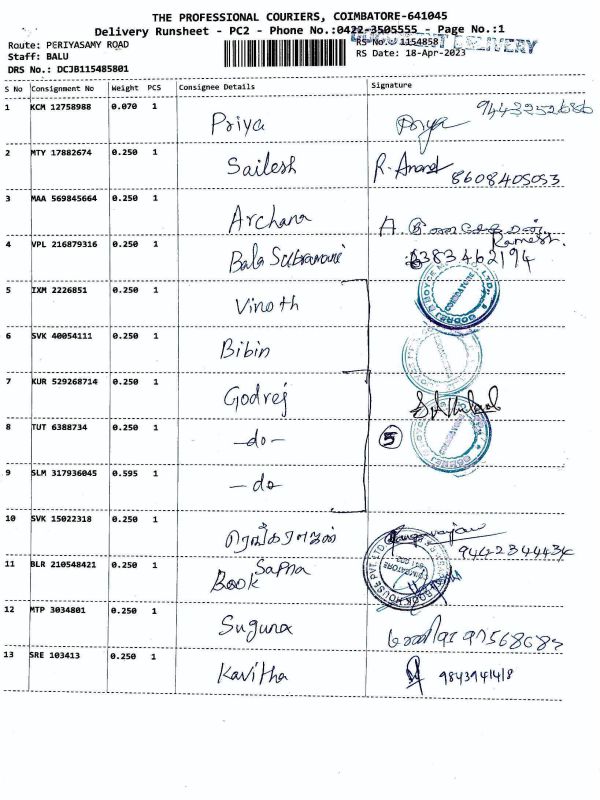 THE PROFESSIONAL COURIERS, COIMBATORE-641045
Delivery Runsheet - PC2 - Phone No.:0422-3505555 Page No.:1
Route: PERIYASAMY ROAD
Staff: BALU
DRS No.: DCJB115485801
RS No.: 1154858
RS Date: 18-Apr-2023
DELIVERY
S No Consignment No Weight PCS Consignee Details Signature
1 KCM 12758988 0.070 1 Priya Priya 9443252686
2 MTY 17882674 0.250 1 Sailesh R. Anand 8608405053
3 MAA 569845664 0.250 1 Archana A.
Ramesh.
4 VPL 216879316 0.250 1 Bala Subramani 383462194
5 IXM 2226851 0.250 1 Vinoth
6 SVK 40054111 0.250 1 Bibin
7 KUR 529268714 0.250 1 Godrej
8 TUT 6388734 0.250 1 -do- 5
9 SLM 317936045 0.595 1 -do-
10 SVK 15022318 0.250 1 ரெங்கராஜன் Rangarajan 9442344434
11 BLR 210548421 0.250 1 Sapna
Book
12 MTP 3034801 0.250 1 Suguna
13 SRE 103413 0.250 1 Kavitha 9843941418